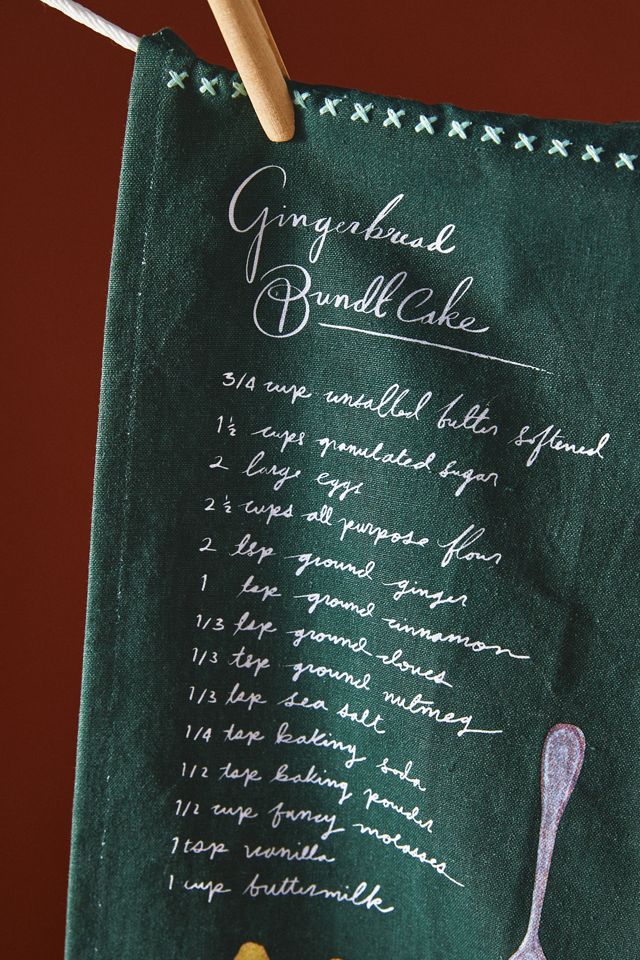 Gingerbread
Bundt Cake
3/4 cup unsalted butter softened
1 ½ cups granulated sugar
2 large eggs
2 ½ cups all purpose flour
2 tsp ground ginger
1 tsp ground cinnamon
1/3 tsp ground cloves
1/3 tsp ground nutmeg
1/3 tsp sea salt
1/4 tsp baking soda
1/2 tsp baking powder
1/2 cup fancy molasses
1 tsp vanilla
1 cup buttermilk